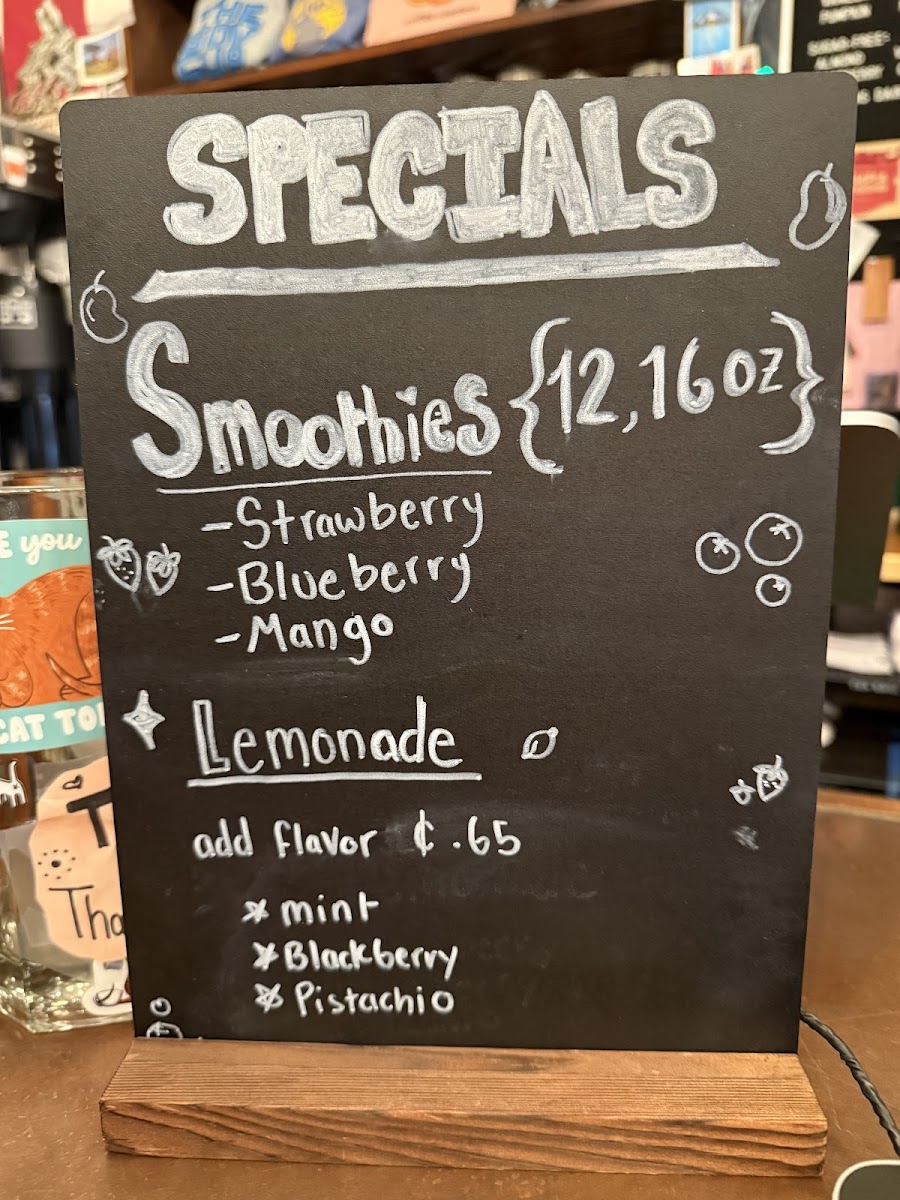 SPECIALS
Smoothies {12, 16 oz}
- Strawberry
- Blueberry
- Mango
Lemonade
add flavor ¢ .65
* mint
* Blackberry
* Pistachio
you
CAT
PUMPKIN
SUGAR-FREE:
ALMOND